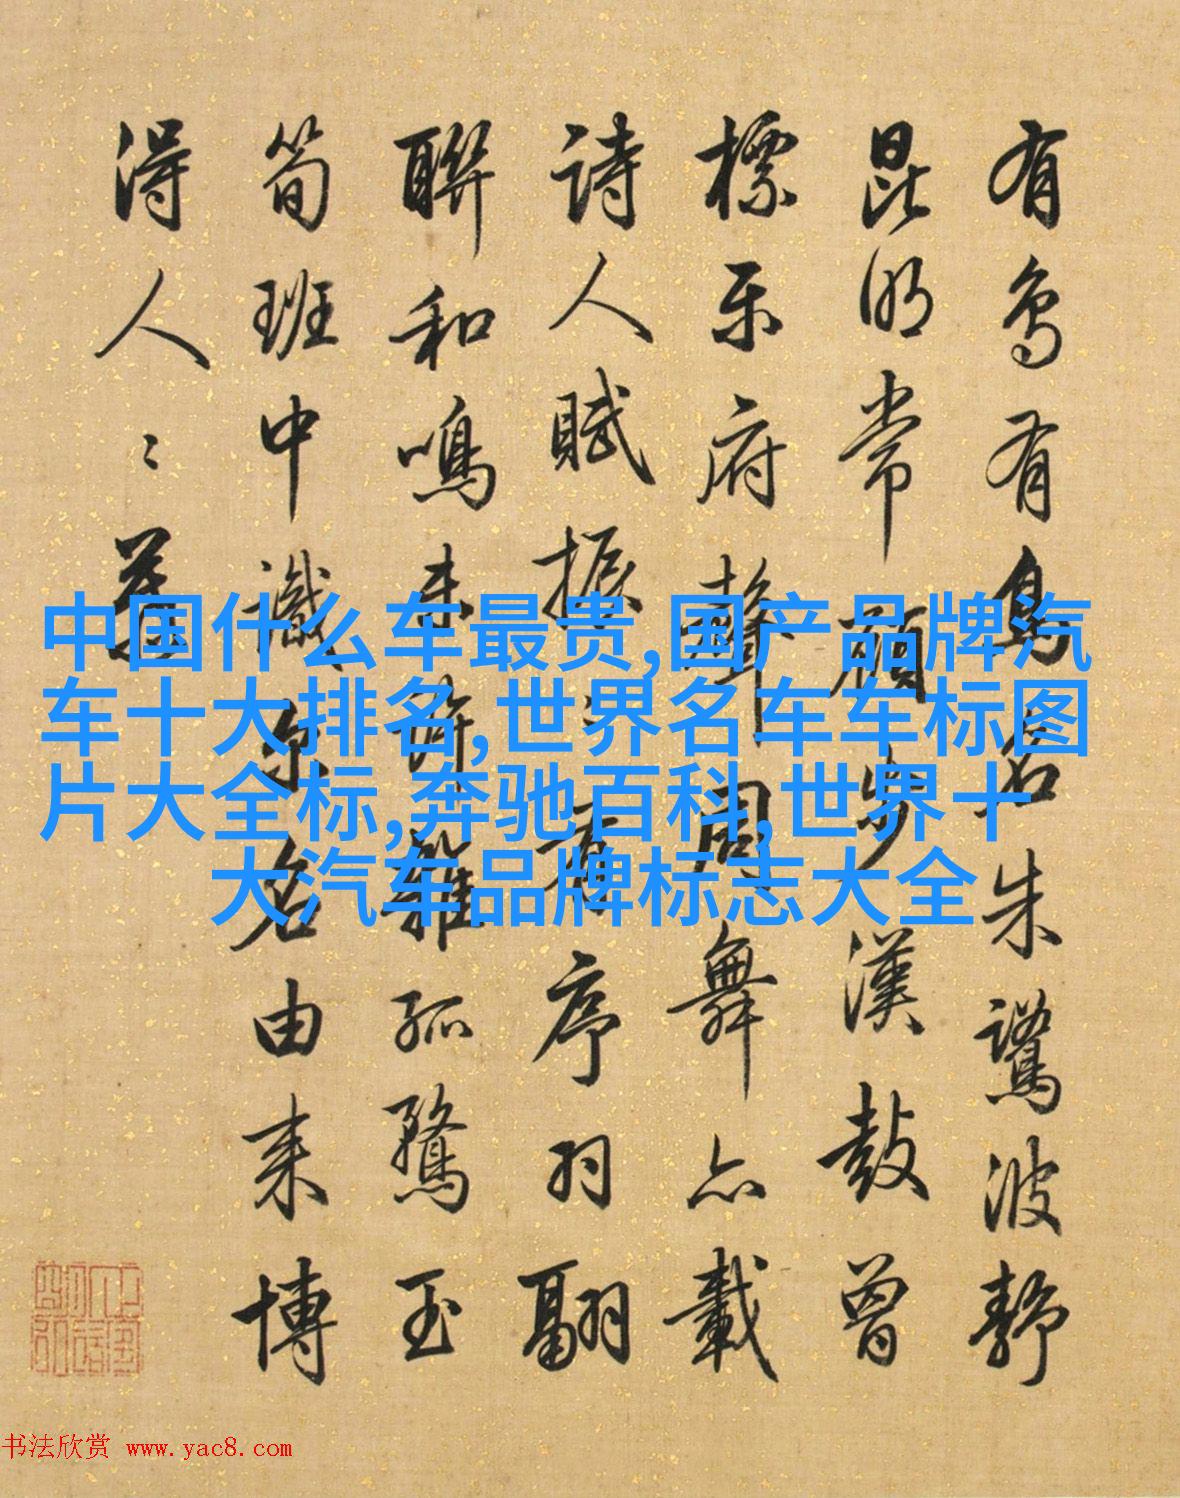 有鳥有鳥名朱鷺波靜
昆明常顧步漢鼓曾
標樂府聲周舞亦載
詩人賦振序羽翮
聯和鳴未許離孤鶩玉
筍班中識尔名由来博
得人〻慕
中国什么车最贵,国产品牌汽
车十大排名,世界名车车标图
片大全标,奔驰百科,世界十
大汽车品牌标志大全
书法欣赏 www.yac8.com